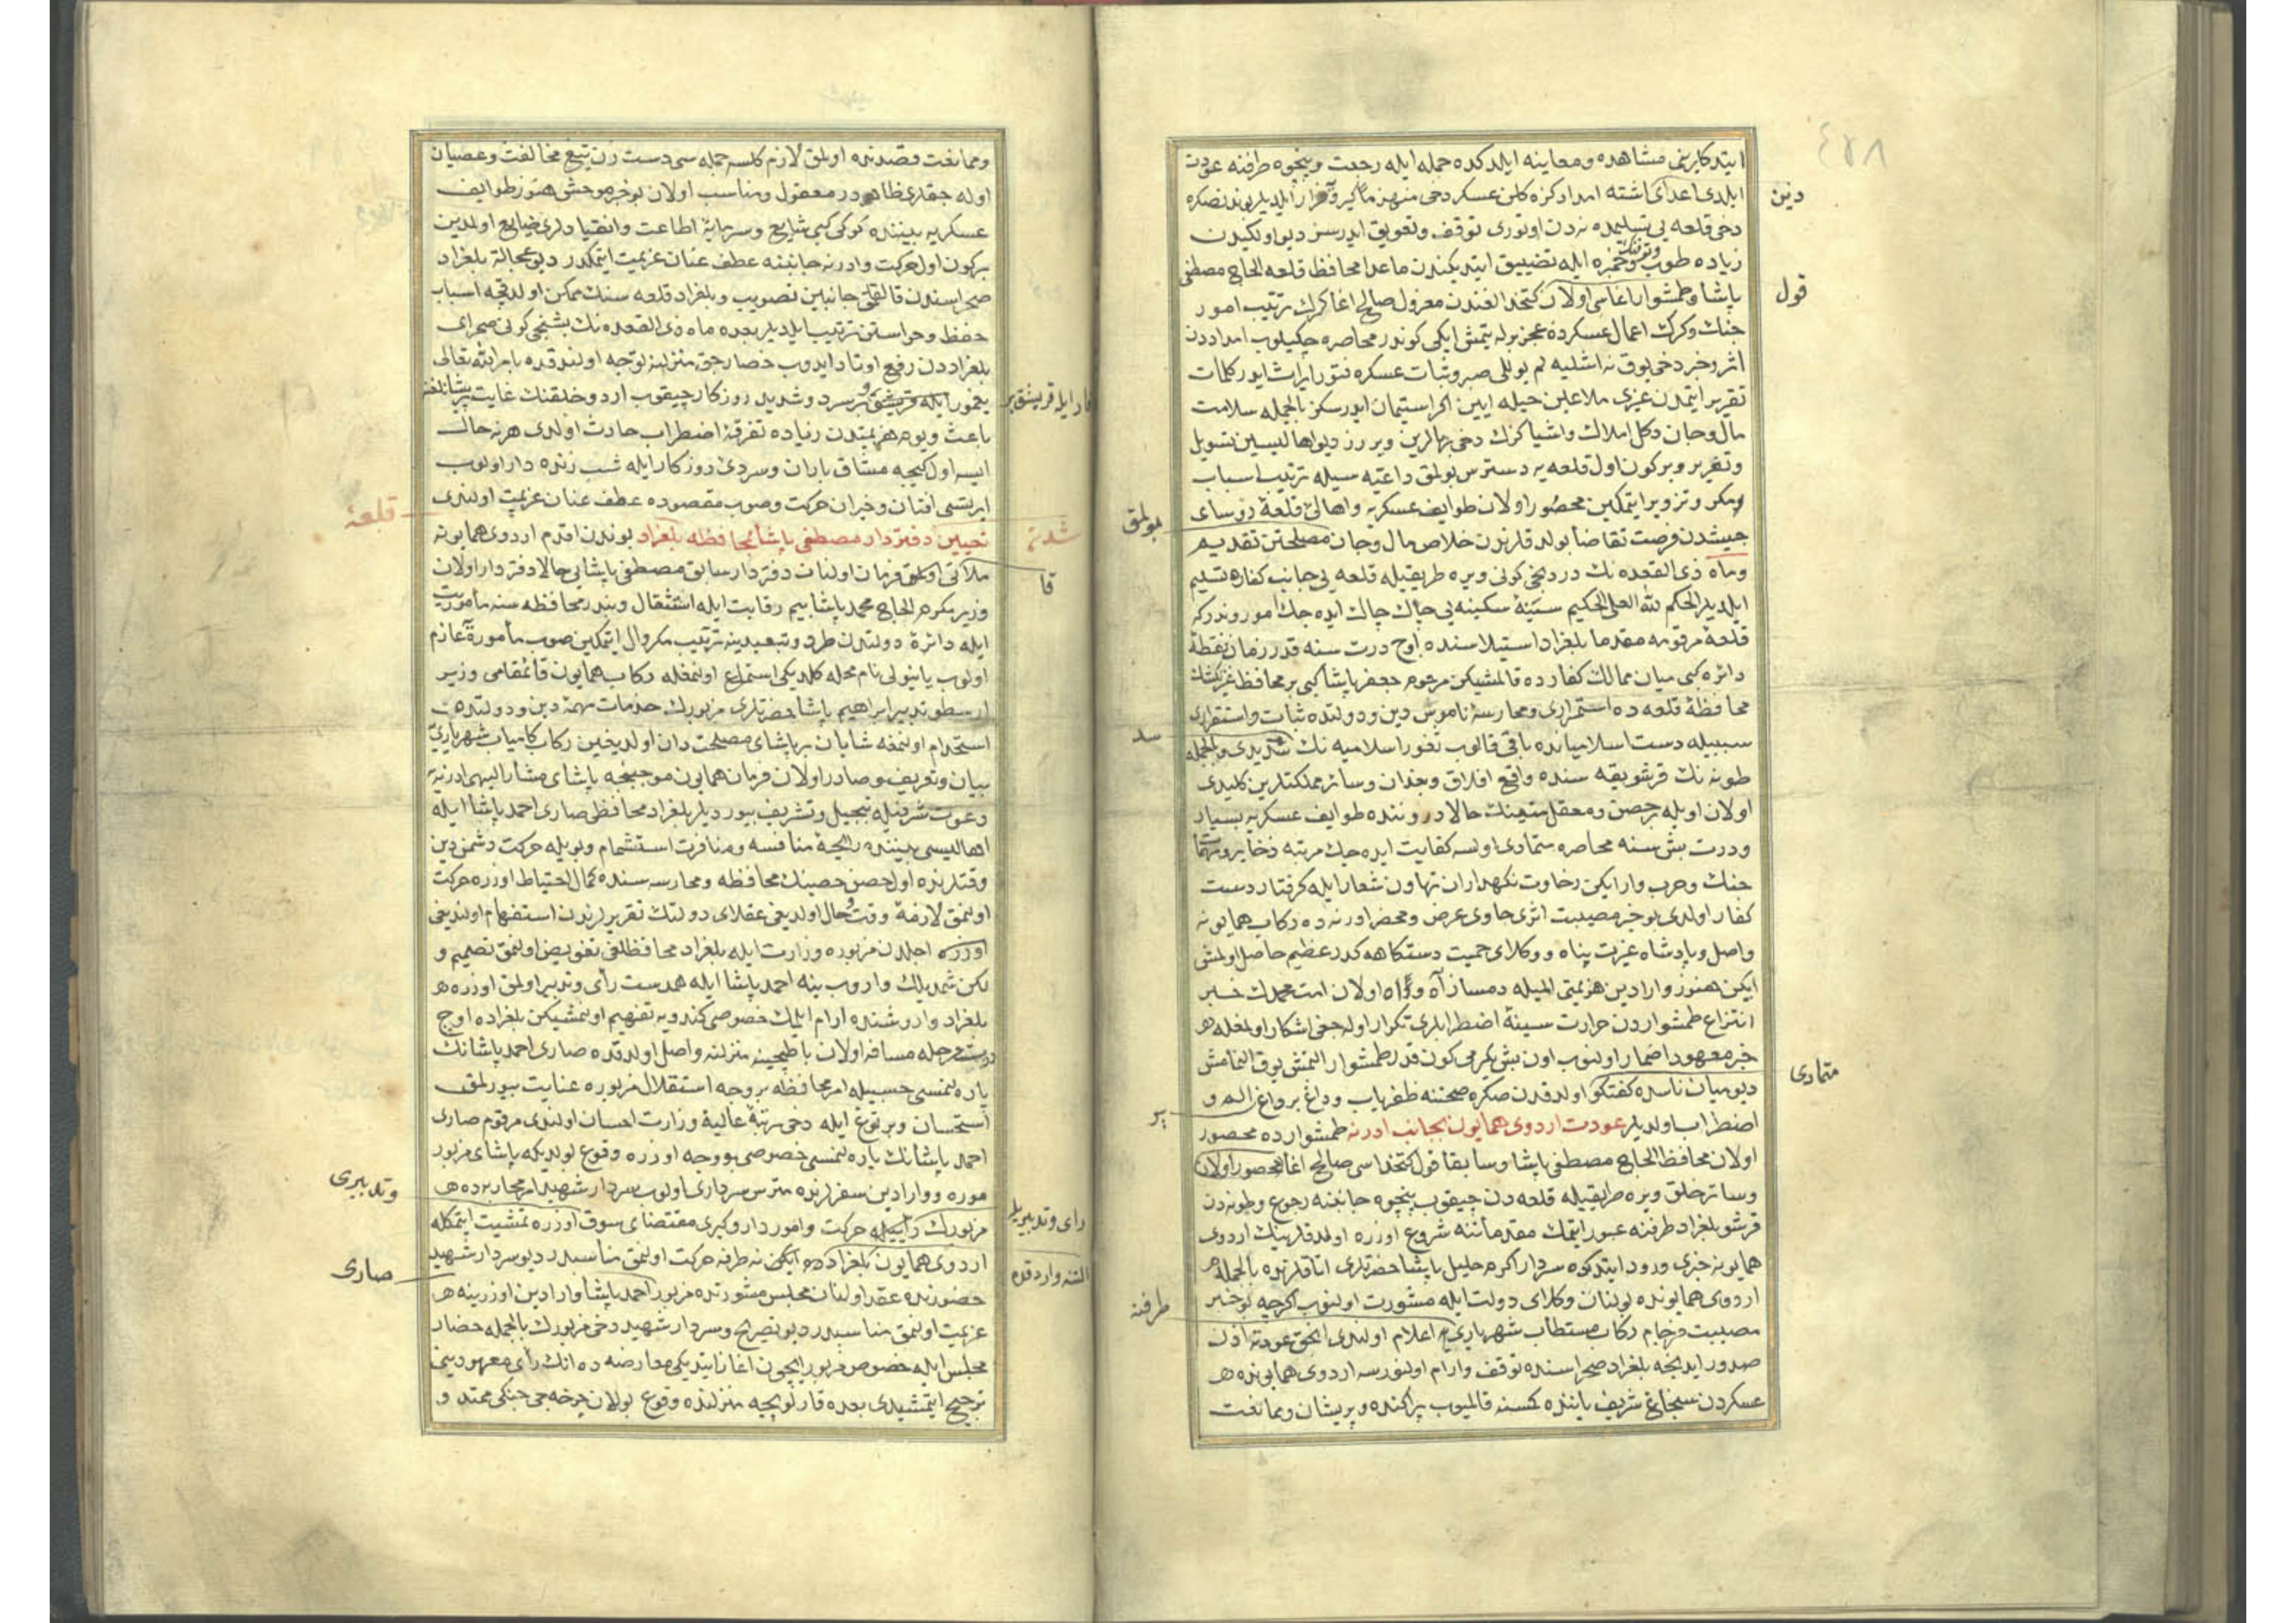 ٤٢٨
ایتدکلرینی مشاهده و معاینه ایلدکده جمله ایله رجعت و پنجوه طرفنه عودت
ایلدی اعدای اشته امداد کزه کلن عسکر دخی منهزماً کیرو فرار ایلدیلر بوندنصکره
دخی قلعه یی تسلیمده نه دن اوتوری توقف و تعویق ایدرسز دیو اولکیدن
زیاده طوب و تفنك و خمبره ایله تضییق ایتدیکندن ماعدا محافظ قلعه الحاج مصطفی
پاشا و طمشوار اغاسی اولان کتخدالغندن معزول صالح اغا کرك ترتیب امور
جنك و کرك اعمال عسکرده عجز بوله یتمش ایکی کوندر محاصره چکیلوب امداددن
اثر و خبر دخی یوق نه اشلیه لم یوللی صبر و ثبات عسکره فتور ایراث ایدر کلمات
تقریر ایتمدن غیری ملاعین حیله ایین اکر استیمان ایدرسکز بالجمله سلامت
مال و جان دکل املاك و اشیاکزك دخی بهالرین ویررز دیو اهالیسین تسویل
و تغریر و بر کون اول قلعه یه دسترس بولمق داعیه سیله ترتیب اسباب
مکر و تزویر ایتمکین محصور اولان طوایف عسکریه و اهالئ قلعه رؤسای
جیشدن فرصت تقاضا بولدقلرندن خلاص مال و جان مصلحتن تقدیم
و ماه ذی القعده نك دردنجی کونی ویره طریقیله قلعه یی جانب کفاره تسلیم
ایلدیلر الحکم لله العلی الحکیم سینهٔ سکینه یی چاك چاك ایده جك اموردندرکه
قلعهٔ مرقومه مقدما بلغراد استیلاسنده اوچ درت سنه قدر زمان نقطهٔ
دائره کبی میان ممالك کفارده قالمشیکن مرحوم جعفر پاشا کبی بر محافظ غیرتکشك
محافظهٔ قلعه ده استمراری و محارسهٔ ناموس دین و دولتده ثبات و استقراری
سببیله دست اسلامیانده باقی قالوب ثغور اسلامیه نك سدیدی و بالجمله
طونه نك قرشو یقه سنده واقع افلاق و بغدان و سائر مملکتلرین کلیدی
اولان اویله بر حصن و معقل متینك حالا دروننده طوایف عسکریه بسیار
و درت بش سنه محاصره متمادی اولسه کفایت ایده جك مرتبه ذخایر و مهمات
جنك و حرب وار ایکن رخاوت نکهداران تهاون شعار ایله کرفتار دست
کفار اولدی بو خبر مصیبت اثری حاوی عرض و محضر ادرنه ده رکاب همایونه
واصل و پادشاه غیرت پناه و وکلای حمیت دستکاهه کدر عظیم حاصل اولمش
ایکن هنوز وارادین هزیمتی المیله دمساز آه و واه اولان امت محمدك خبر
انتزاع طمشواردن حرارت سینهٔ اضطرابلری تکرار اوله جغی اشکار اولمغله
خبر معهود اضمار اولنوب اون بش یکرمی کون قدر طمشوار النمش یوق النمامش
دیو میان ناسده کفتکو اولدقدن صکره صحتنه ظفریاب و داغ بر داغ الم و
اضطراب اولدیلر عودت اردوی همایون بجانب ادرنه طمشوارده محصور
اولان محافظ الحاج مصطفی پاشا و سابقا قول کتخداسی صالح اغا محصور اولان
و سائر خلق ویره طریقیله قلعه دن چیقوب پنچوه جانبنه رجوع و طونه دن
قرشو بلغراد طرفنه عبور ایتمك مقدماتنه شروع اوزره اولدقلرینك اردوی
همایونه خبری ورود ایتدکده سردار اکرم خلیل پاشا حضرتلری اتاقلرنده بالجمله
اردوی همایونده بولنان وکلای دولت ایله مشورت اولنوب اکرچه بو خبر
مصیبت فرجام رکاب مستطاب شهریاری یه اعلام اولندی انجق عودته اذن
صدور ایدنجه بلغراد صحراسنده توقف و ارام اولنورسه اردوی همایونده
عسکردن سنجاغ شریف یاننده کمسنه قالمیوب پراکنده و پریشان و ممانعت
دین
قول
بولمق
سد
متمادی
بر
طرفنه
و ممانعت قصدنده اولمق لازم کلسه جمله سی دست زن تیغ مخالفت و عصیان
اوله جقلری ظاهر در معقول و مناسب اولان بو خبر موحش هنوز طوایف
عسکریه بیننده کرکی کبی شایع و سرمایهٔ اطاعت و انقیادلری ضایع اولمدین
بر کون اول حرکت و ادرنه جانبنه عطف عنان عزیمت ایتمکدر دیو عجالة بلغراد
صحراسندن قالقلمق جانبین تصویب و بلغراد قلعه سنك ممکن اولدقجه اسباب
حفظ و حراستن ترتیب ایلدیلر بعده ماه ذی القعده نك بشنجی کونی صحرای
بلغراددن رفع اوتاد ایدوب حصارجق منزلنه توجه اولندقده بامر الله تعالی
یغمور ایله قریشق بر سرد و شدید روزکار چیقوب اردو خلقنك غایت پریشانلغنه
باعث و یوم هزیمتدن زیاده تفرقه و اضطراب حادث اولدی هر نه حال
ایسه اول کیجه مشاق باران و سردئ روزکار ایله شب زنده دار اولوب
ایرتسی افتان و خیزان حرکت و صوب مقصوده عطف عنان عزیمت اولندی
تعیین دفتردار مصطفی پاشا بمحافظه بلغراد بوندن اقدم اردوی همایونه
ملاقی اولمق فرمان اولنان دفتردار سابق مصطفی پاشایی حالا دفتردار اولان
وزیر مکرم الحاج محمد پاشا بیم رقابت ایله استثقال و بندر محافظه سنه مأموریت
ایله دائرهٔ دولتدن طرد و تبعیدینه ترتیب مکر و ال ایتمکین صوب مأموره عازم
اولوب یانبولی نام محله کلدیکی استماع اولنمغله رکاب همایون قائمقامی وزیر
ارسطو تدبیر ابراهیم پاشا حضرتلری مزبورك خدمات مهمهٔ دین و دولتده
استخدام اولنمغه شایان بر پاشای مصلحت دان اولدیغین رکاب کامیاب شهریاری یه
بیان و تعریف و صادر اولان فرمان همایون موجبنجه پاشای مشار الیهی ادرنه یه
دعوت شریفیله تبجیل و تشریف بیوردیلر بلغراد محافظی صاری احمد پاشا ایله
اهالیسی بیننده رایحهٔ منافسه و منافرت استشمام و بویله حرکت دشمن دین
وقتلرنده اول حصن حصینك محافظه و محارسه سنده کمال احتیاط اوزره حرکت
اولنمق لازمهٔ وقت و حال اولدیغی عقلای دولتك تقریرلرندن استفهام اولندیغی
اوزره اجلدن مزبوره وزارت ایله بلغراد محافظلغی تفویض اولنمق تصمیم و
لکن شمدیلك واروب ینه احمد پاشا ایله همدست رأی و تدبیر اولمق اوزره
بلغراد واروشنده ارام ایلمك خصوصی کندویه تفهیم اولنمشیکن بلغراده اوچ
درت مرحله مسافه اولان باطبجینه منزلنه واصل اولدقده صاری احمد پاشانك
پاره لنمسی حسبیله امر محافظه بر وجه استقلال مزبوره عنایت بیورلمق
استحسان و بر توغ ایله دخی رتبهٔ عالیهٔ وزارت احسان اولندی مرقوم صاری
احمد پاشانك پاره لنمسی خصوصی بو وجه اوزره وقوع بولدیکه پاشای مزبور
موره و وارادین سفرلرنده مترس سرداری اولوب سردار شهید امر محاربه ده
مزبورك رأییله حرکت و امور دار و کیری مقتضای سوق اوزره تمشیت ایتمکله
اردوی همایون بلغرادده ایکن نه طرفه حرکت اولنمق مناسبدر دیو سردار شهید
حضورنده عقد اولنان مجلس مشورتده مزبور احمد پاشا وارادین اوزرینه
عزیمت اولنمق مناسبدر دیو تصریح و سردار شهید دخی مزبورك بالجمله حضار
مجلس ایله خصوص مزبور ایچون اغاز ایتدیکی معارضه ده انك رأی معهودینی
ترجیح ایتمشیدی بعده قارلویجه منزلنده وقوع بولان چرخه جی جنکی ممتد و
یغار ایله قریشق بر
شدتم
قا
رای و تدبیریله
السنه واردقده
قلعهٔ
و تدبیری
صاری